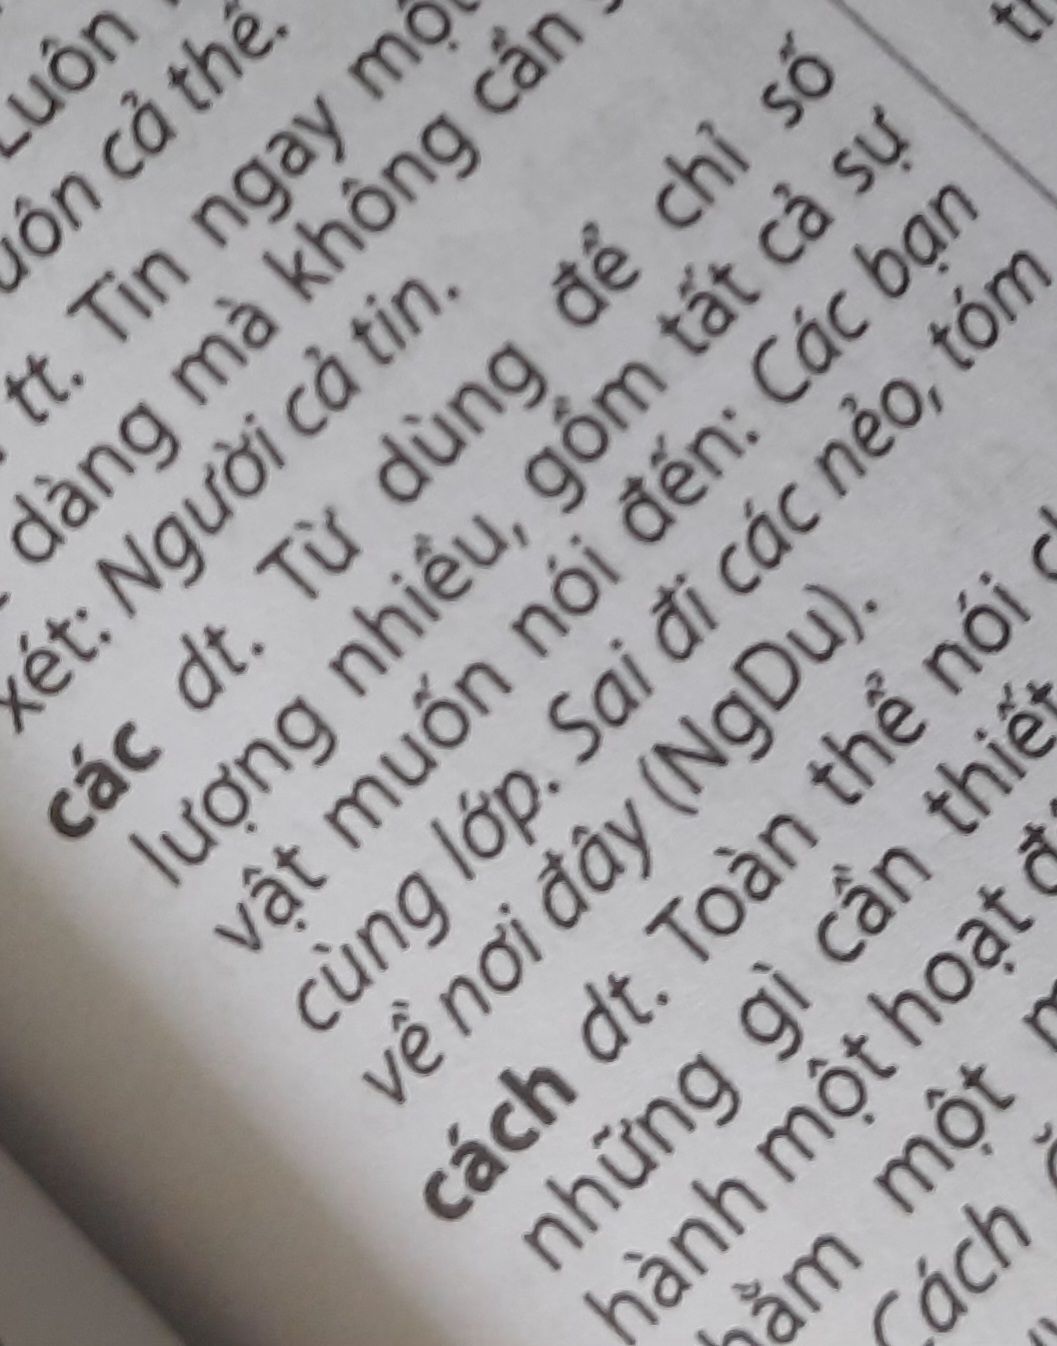 Luôn
uôn cả thể.
tt. Tin ngay một
dàng mà không cần
xét: Người cả tin.
các dt. Từ dùng để chỉ số
lượng nhiều, gồm tất cả sự
vật muốn nói đến: Các bạn
cùng lớp. Sai đi các nẻo, tóm
về nơi đây (NgDu).
cách dt. Toàn thể nói
những gì cần thiết
hành một hoạt
một
Cách